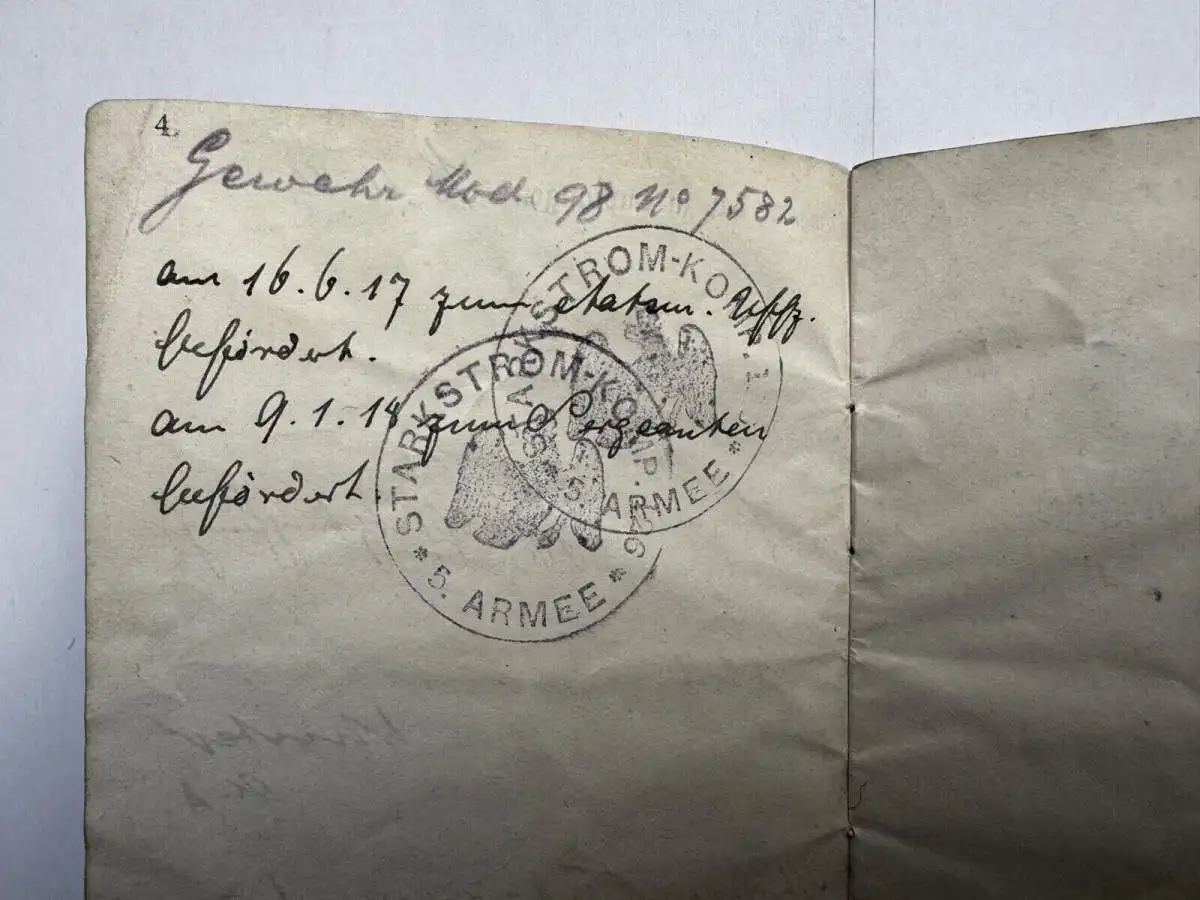 4.
Gewehr Mod 98 No 7582
am 16.6.17 zum etatsm. Uffz.
befördert.
am 9.1.18 zum Sergeanten
befördert.
STARKSTROM-KOMP.
* 5. ARMEE *
STARKSTROM-KOMP.
* 5. ARMEE *